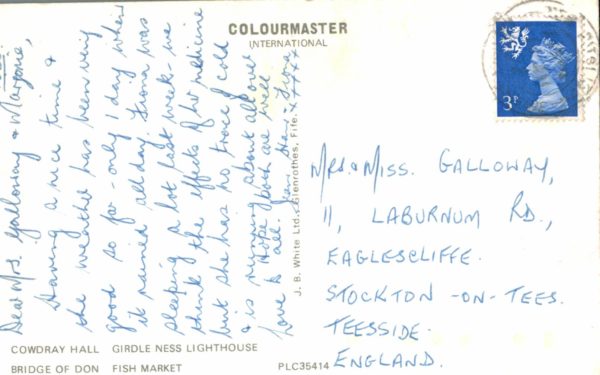 COLOURMASTER
INTERNATIONAL
Dear Mrs. Galloway & Marjorie,
Having a nice time &
the weather has been very
good so far - only 1 day when
it rained all day. Fiona was
sleeping a lot last week - we
think the effects of her medicine
but she has no trace of cold
& is running about all over
Hope you both are well
Love to all.
Fiona
xxxx
J. B. White Ltd., Glenrothes, Fife.
3P
MRS. & MISS. GALLOWAY,
11, LABURNUM RD.,
EAGLESCLIFFE.
STOCKTON-ON-TEES.
TEESSIDE.
ENGLAND.
COWDRAY HALL GIRDLE NESS LIGHTHOUSE
BRIDGE OF DON FISH MARKET PLC35414